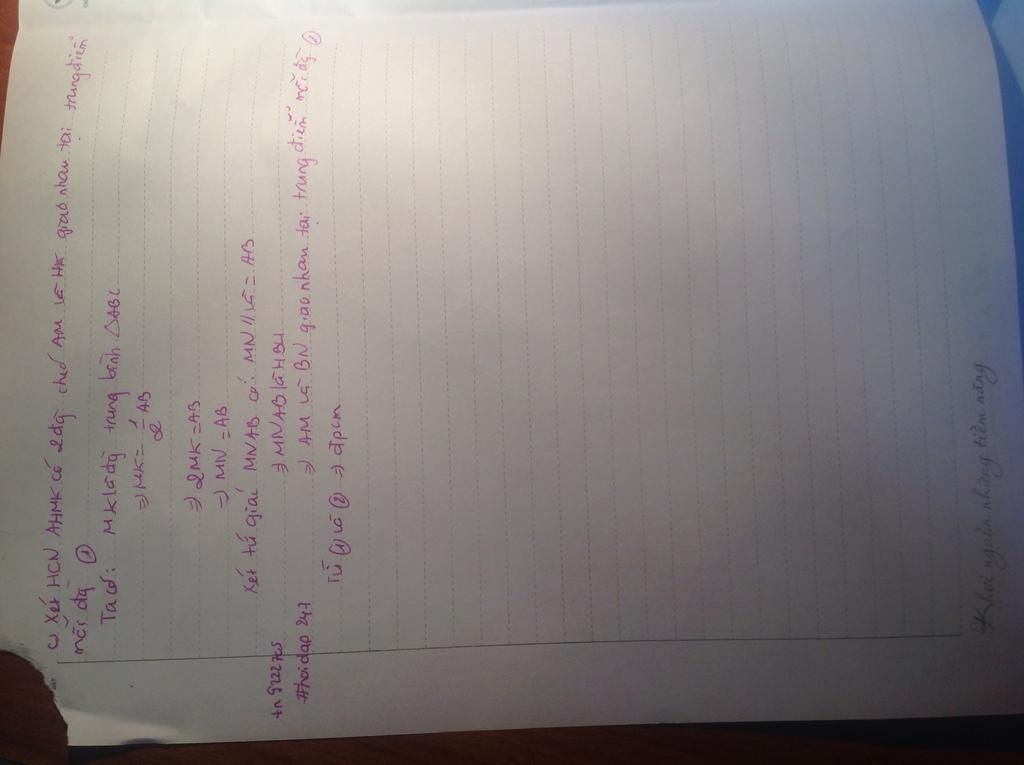 c) Xét HCN AHMK có 2 đg chéo AM và HK giao nhau tại trung điểm
mỗi đg ①
Ta có: MK là đg trung bình △ABC
⇒ MK = 1/2 AB
⇒ 2MK = AB
⇒ MN = AB
Xét tứ giác MNAB có: MN // và = AB
⇒ MNAB là HBH
⇒ AM và BN giao nhau tại trung điểm mỗi đg ②
Từ ① và ② ⇒ đpcm
#hoidap247
Khơi nguồn những tiềm năng